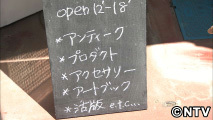 open 12'-18'
*アンティーク
*プロダクト
*アクセサリー
*アートブック
*活版 e.t.c...
©NTV